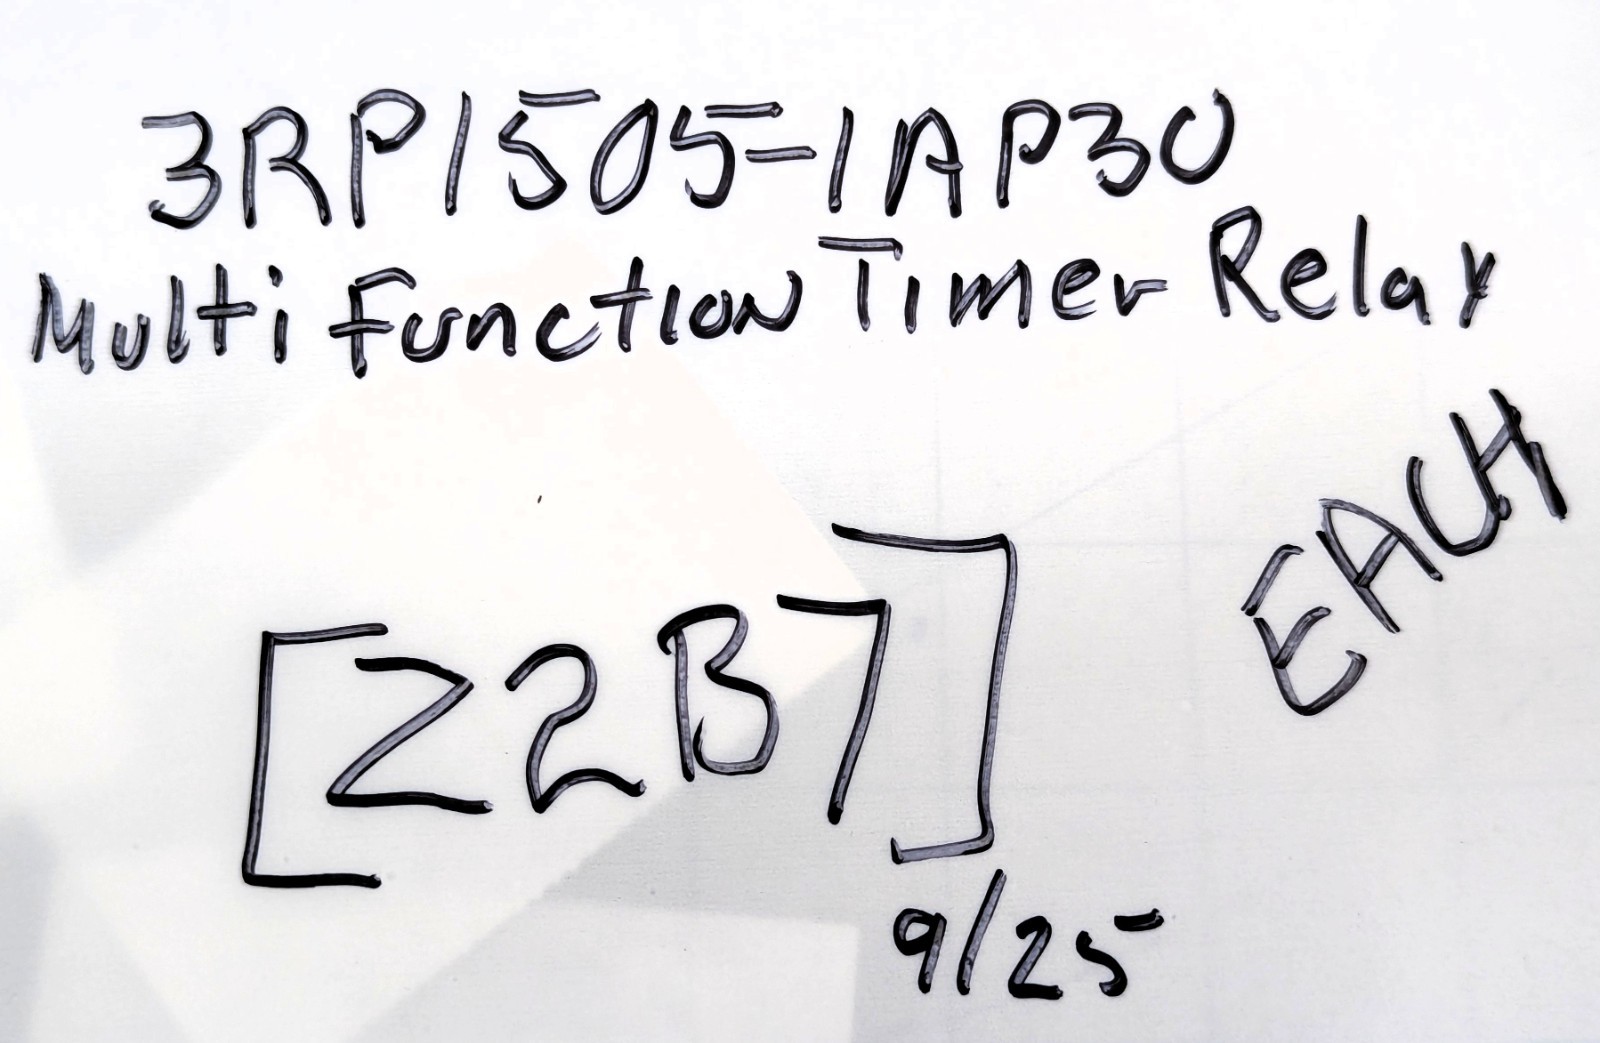 3RP1505-1AP30
Multi Function Timer Relay
EACH
[Z2B7]
9/25